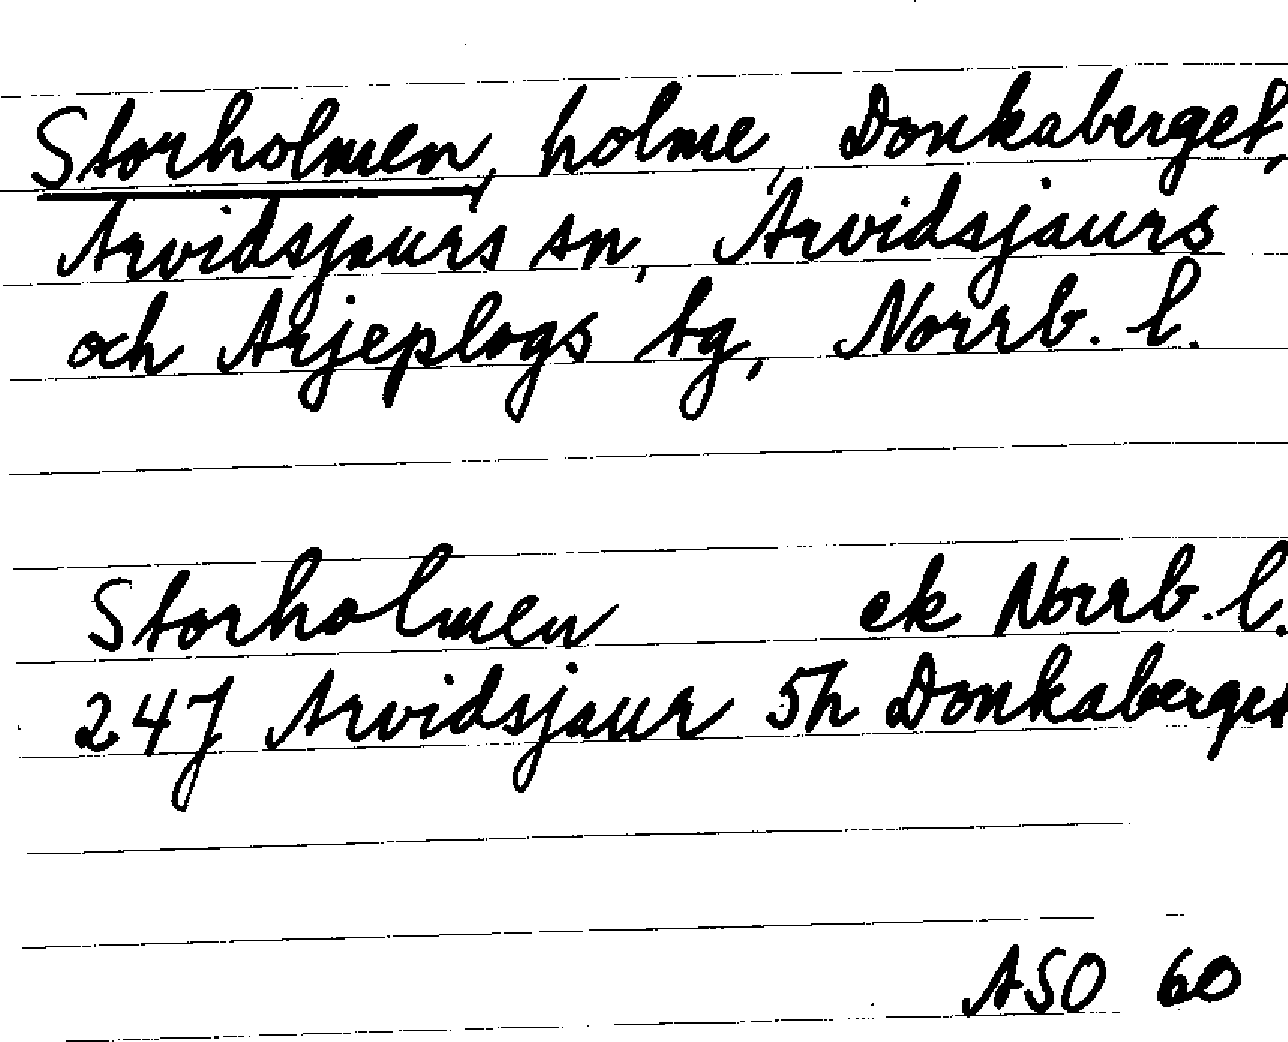 Storholmen, holme, Donkaberget,
Arvidsjaurs sn, Arvidsjaurs
och Arjeplogs tg, Norrb. l.
Storholmen ek Norrb. l.
24J Arvidsjaur 5h Donkaberget
ASO 60